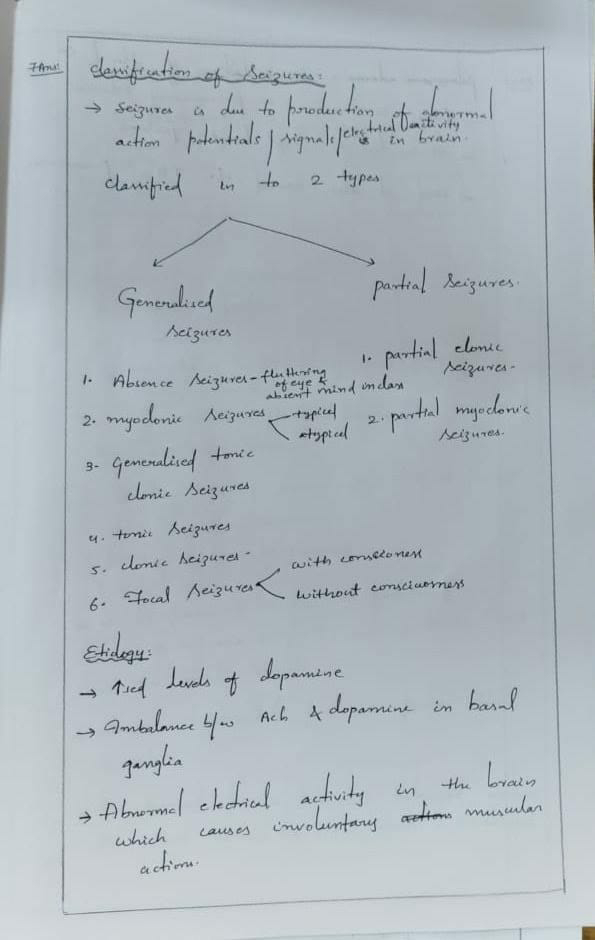 7Ans:
classification of Seizures:
→ Seizures is due to production of abnormal
action potentials / signals / electrical activity
in brain.
classified in to 2 types
Generalised
Seizures
partial Seizures.
1. Absence Seizures - fluttering
of eye &
absent mind in class
2. myoclonic Seizures typical
atypical
3- Generalised tonic
clonic Seizures
4. tonic Seizures
5. clonic Seizures -
6. Focal Seizures with conscioness
without consciousness
1. partial clonic
Seizures -
2. partial myoclonic
Seizures.
Etiology:
→ ↑sed levels of dopamine
→ Imbalance b/w Ach & dopamine in basal
ganglia
→ Abnormal electrical activity in the brain
which causes involuntary actions muscular
action.